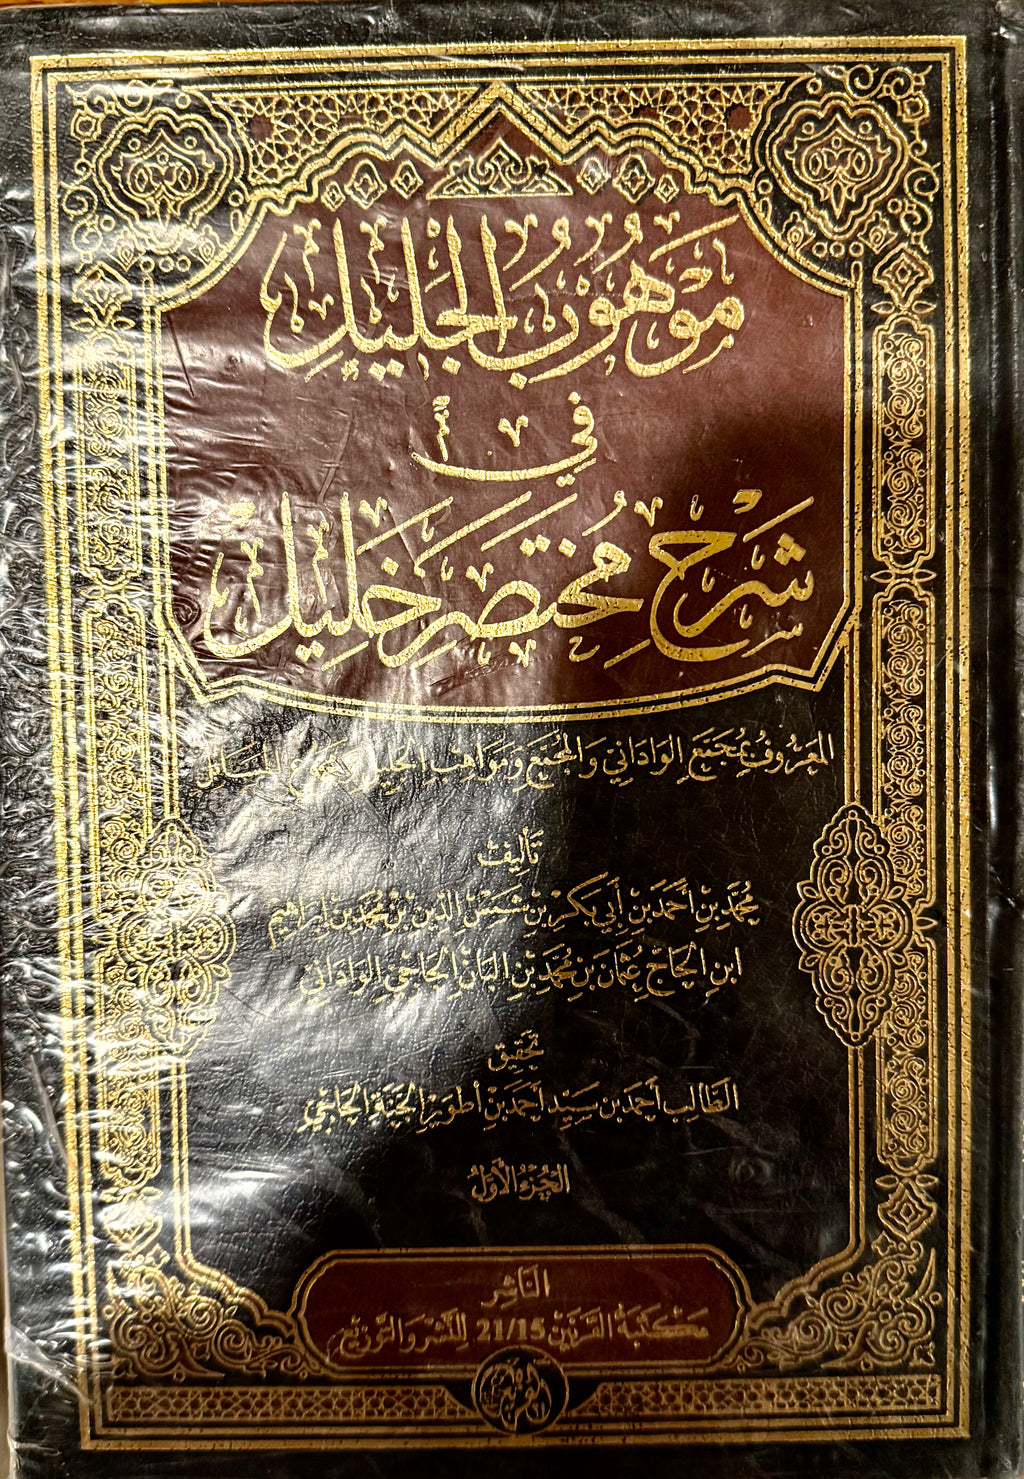 مَوْهُوبُ الجَلِيلِ
فِي
شَرْحِ مُخْتَصَرِ خَلِيلٍ
المَعْرُوفُ بِمُجَمِّعِ الوَادَانِيِّ وَالمُجَمِّعِ وَمَوَاهِبِ الجَلِيلِ
تَأْلِيفُ
مُحَمَّدِ بْنِ أَحْمَدَ بْنِ أَبِي بَكْرِ بْنِ شَمْسِ الدِّينِ بْنِ مُحَمَّدِ بْنِ إِبْرَاهِيمَ
ابْنِ الحَاجِّ عُثْمَانَ بْنِ مُحَمَّدِ بْنِ البَانِ الحَاجِيِّ الوَادَانِيِّ
تَحْقِيقُ
الطَّالِبِ أَحْمَدَ بْنِ سَيِّدِ أَحْمَدَ بْنِ أَطْوَيْرِ الجَنَّةِ الحَاجِيِّ
الجُزْءُ الأَوَّلُ
النَّاشِرُ
مَكْتَبَةُ القَرْنَيْنِ 21/15 لِلنَّشْرِ وَالتَّوْزِيعِ
القرنين